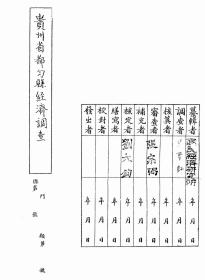 纂輯者 經濟研究所
調查者 年 月 日
核算者 年 月 日
審查者 張宗弼 年 月 日
補充者 年 月 日
核定者 劉大鈞 年 月 日
繕寫者 年 月 日
校對者 年 月 日
發出者 年 月 日
貴州省都勻縣經濟調查
門 類 第 號